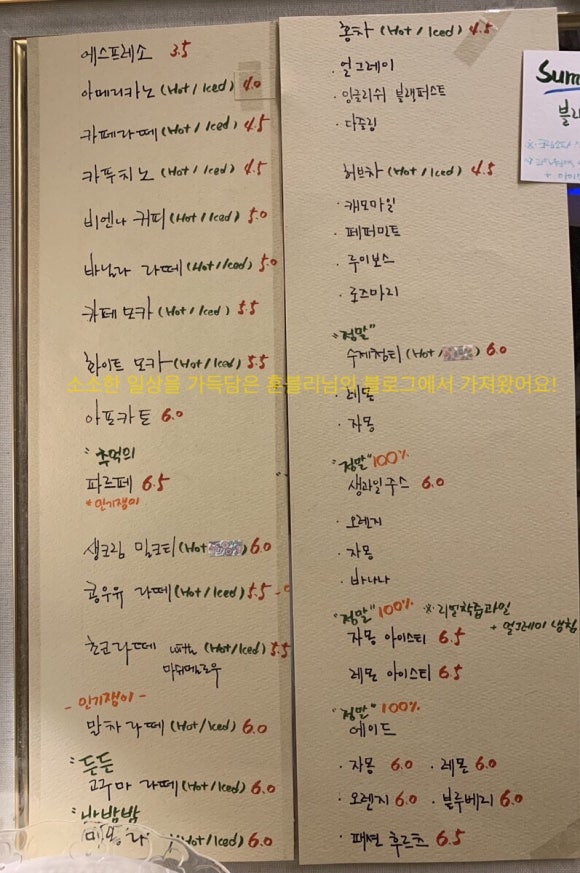 에스프레소 3.5
아메리카노 (Hot / Iced) 4.0
카페라떼 (Hot / Iced) 4.5
카푸치노 (Hot / Iced) 4.5
비엔나 커피 (Hot / Iced) 5.0
바닐라 라떼 (Hot / Iced) 5.0
카페 모카 (Hot / Iced) 5.5
화이트 모카 (Hot / Iced) 5.5
아포카토 6.0
"추억의
파르페 6.5
*인기쟁이
생크림 밀크티 (Hot 6.0
콩우유 라떼 (Hot / Iced) 5.5
초코라떼 with (Hot / Iced) 5.5
마쉬멜로우
- 인기쟁이 -
말차 라떼 (Hot / Iced) 6.0
"든든
고구마 라떼 (Hot / Iced) 6.0
(Hot / Iced) 6.0
홍차 (Hot / Iced) 4.5
· 얼그레이
· 잉글리쉬 블랙퍼스트
· 다즐링
허브차 (Hot / Iced) 4.5
· 캐모마일
· 페퍼민트
· 루이보스
· 로즈마리
"정말"
수제청티 (Hot / ) 6.0
· 레몬
· 자몽
"정말" 100%
생과일주스 6.0
· 오렌지
· 자몽
· 바나나
"정말" 100% ※ 리얼착즙과일
+ 얼그레이 냉침
자몽 아이스티 6.5
레몬 아이스티 6.5
"정말" 100%
에이드
· 자몽 6.0 · 레몬 6.0
· 오렌지 6.0 · 블루베리 6.0
· 패션 후르츠 6.5
Sum
블루
소소한 일상을 가득담은 훈블리님의 블로그에서 가져왔어요!